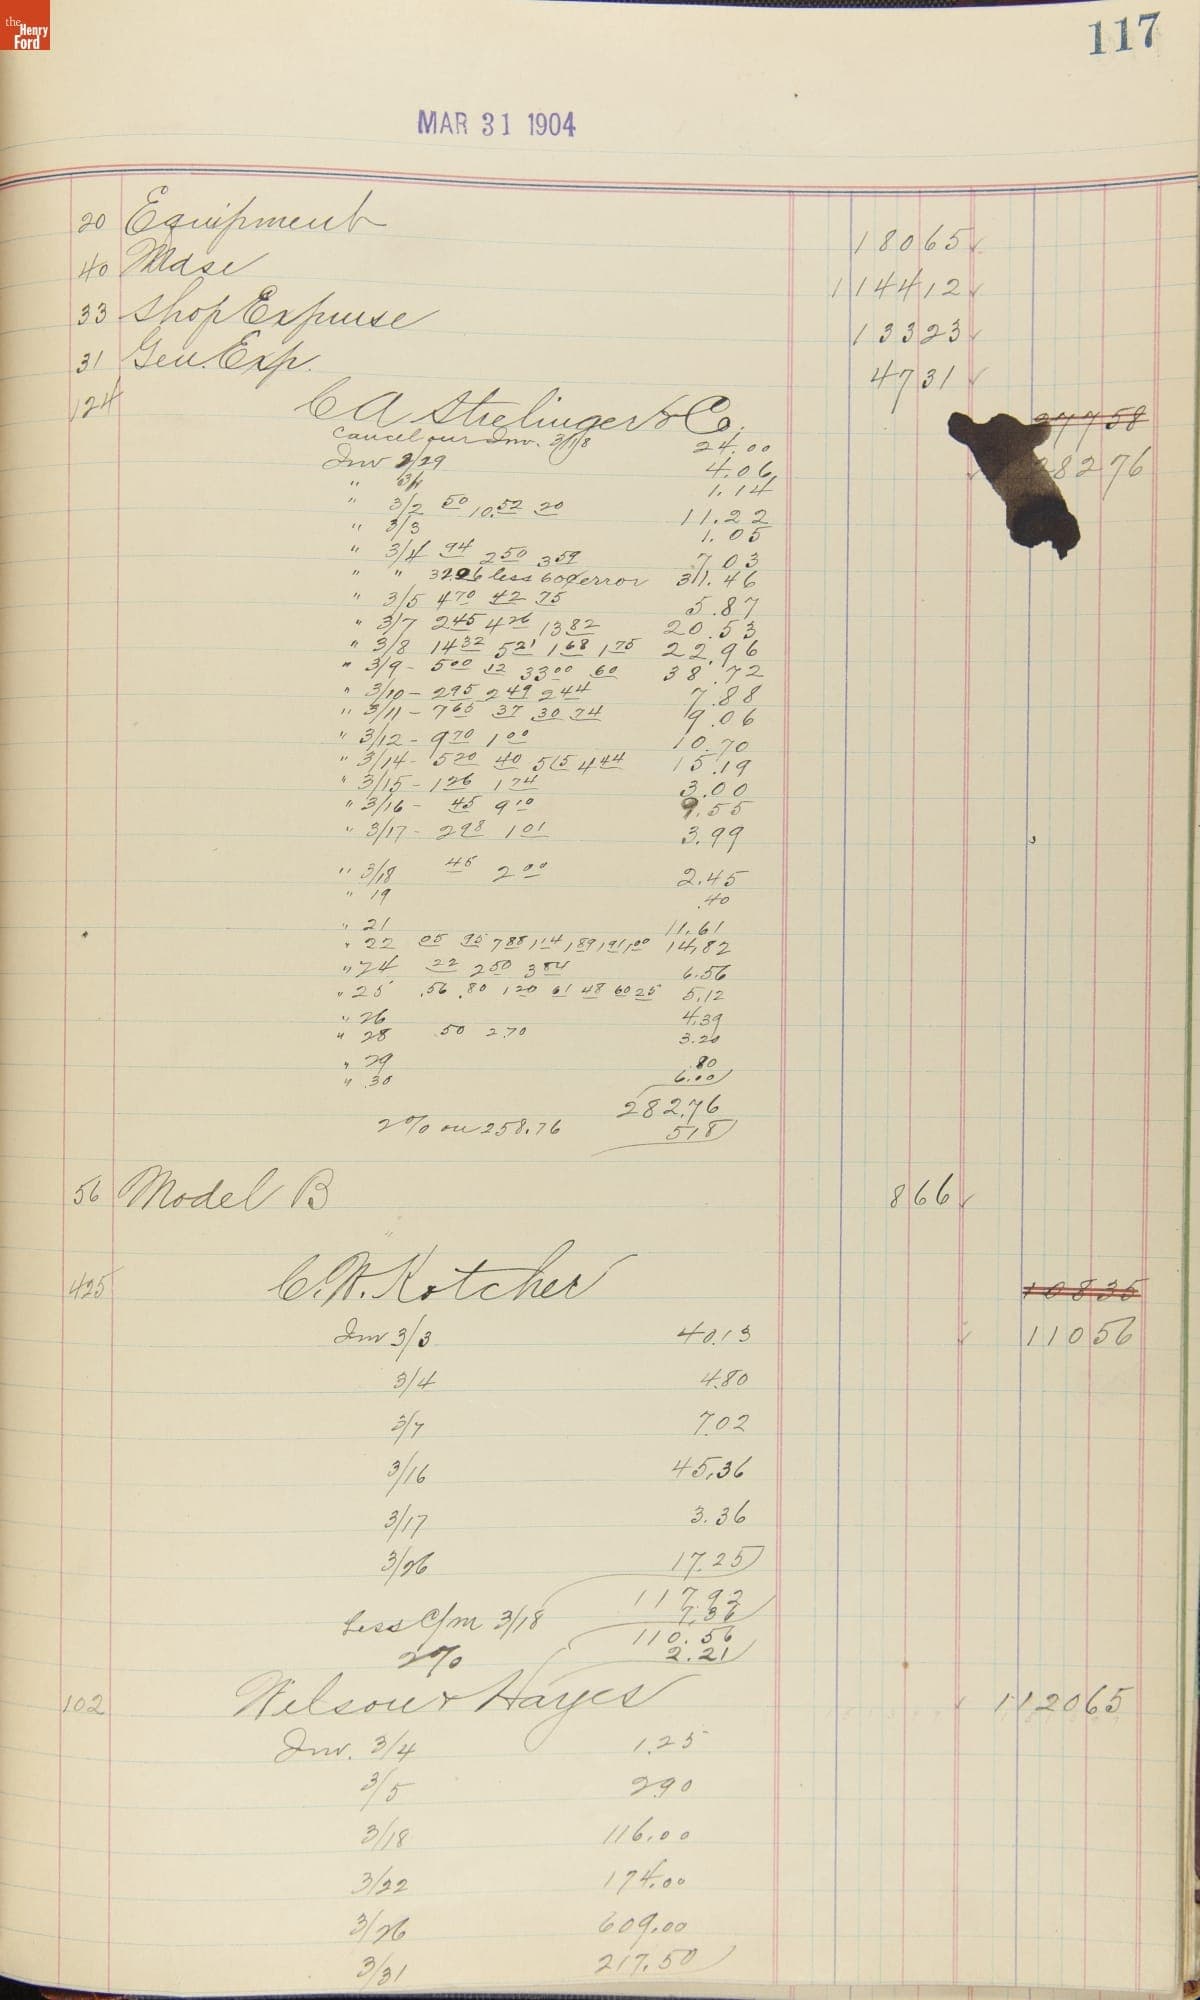 the Henry Ford
117
MAR 31 1904
20 Equipment 18065
40 Mdse 114412
33 Shop Expense 13323
31 Gen. Exp. 4731
124 C A Strelinger & Co. 27758
Cancel our Inv. 3/1/8 24.00
28276
Inv 2/29 4.06
" 3/1 1.14
" 3/2 50 10.52 20 11.22
" 3/3 1.05
" 3/4 94 250 359 7 03
" " 3206 less 60¢ error 31.46
" 3/5 470 42 75 5.87
" 3/7 245 426 1382 20.53
" 3/8 1432 521 168 175 22.96
" 3/9 - 500 12 3300 60 38.72
" 3/10 - 295 249 244 7.88
" 3/11 - 765 37 30 74 9.06
" 3/12 - 970 100 10.70
" 3/14 - 520 40 515 444 15.19
" 3/15 - 126 174 3.00
" 3/16 - 45 910 9.55
" 3/17 - 298 101 3.99
" 3/18 45 200 2.45
" 19 .40
" 21 11.61
" 22 05 95 788 114 189 191 100 14.82
" 24 22 250 384 6.56
" 25 .56 .80 120 61 48 60 25 5.12
" 26 4.39
" 28 50 2.70 3.20
" 29 .80
" 30 6.00
282.76
2% on 258.76 518
56 Model B 866
425 C. W. Kotcher 10835
Inv 3/3 40.13 11056
3/4 4.80
3/7 7.02
3/16 45.36
3/17 3.36
3/26 17.25
117.92
Less C/m 3/18 7.36
110.56
2% 2.21
102 Wilson & Hayes 112065
Inv. 3/4 1.25
3/5 2.90
3/18 116.00
3/22 174.00
3/26 609.00
3/31 217.50